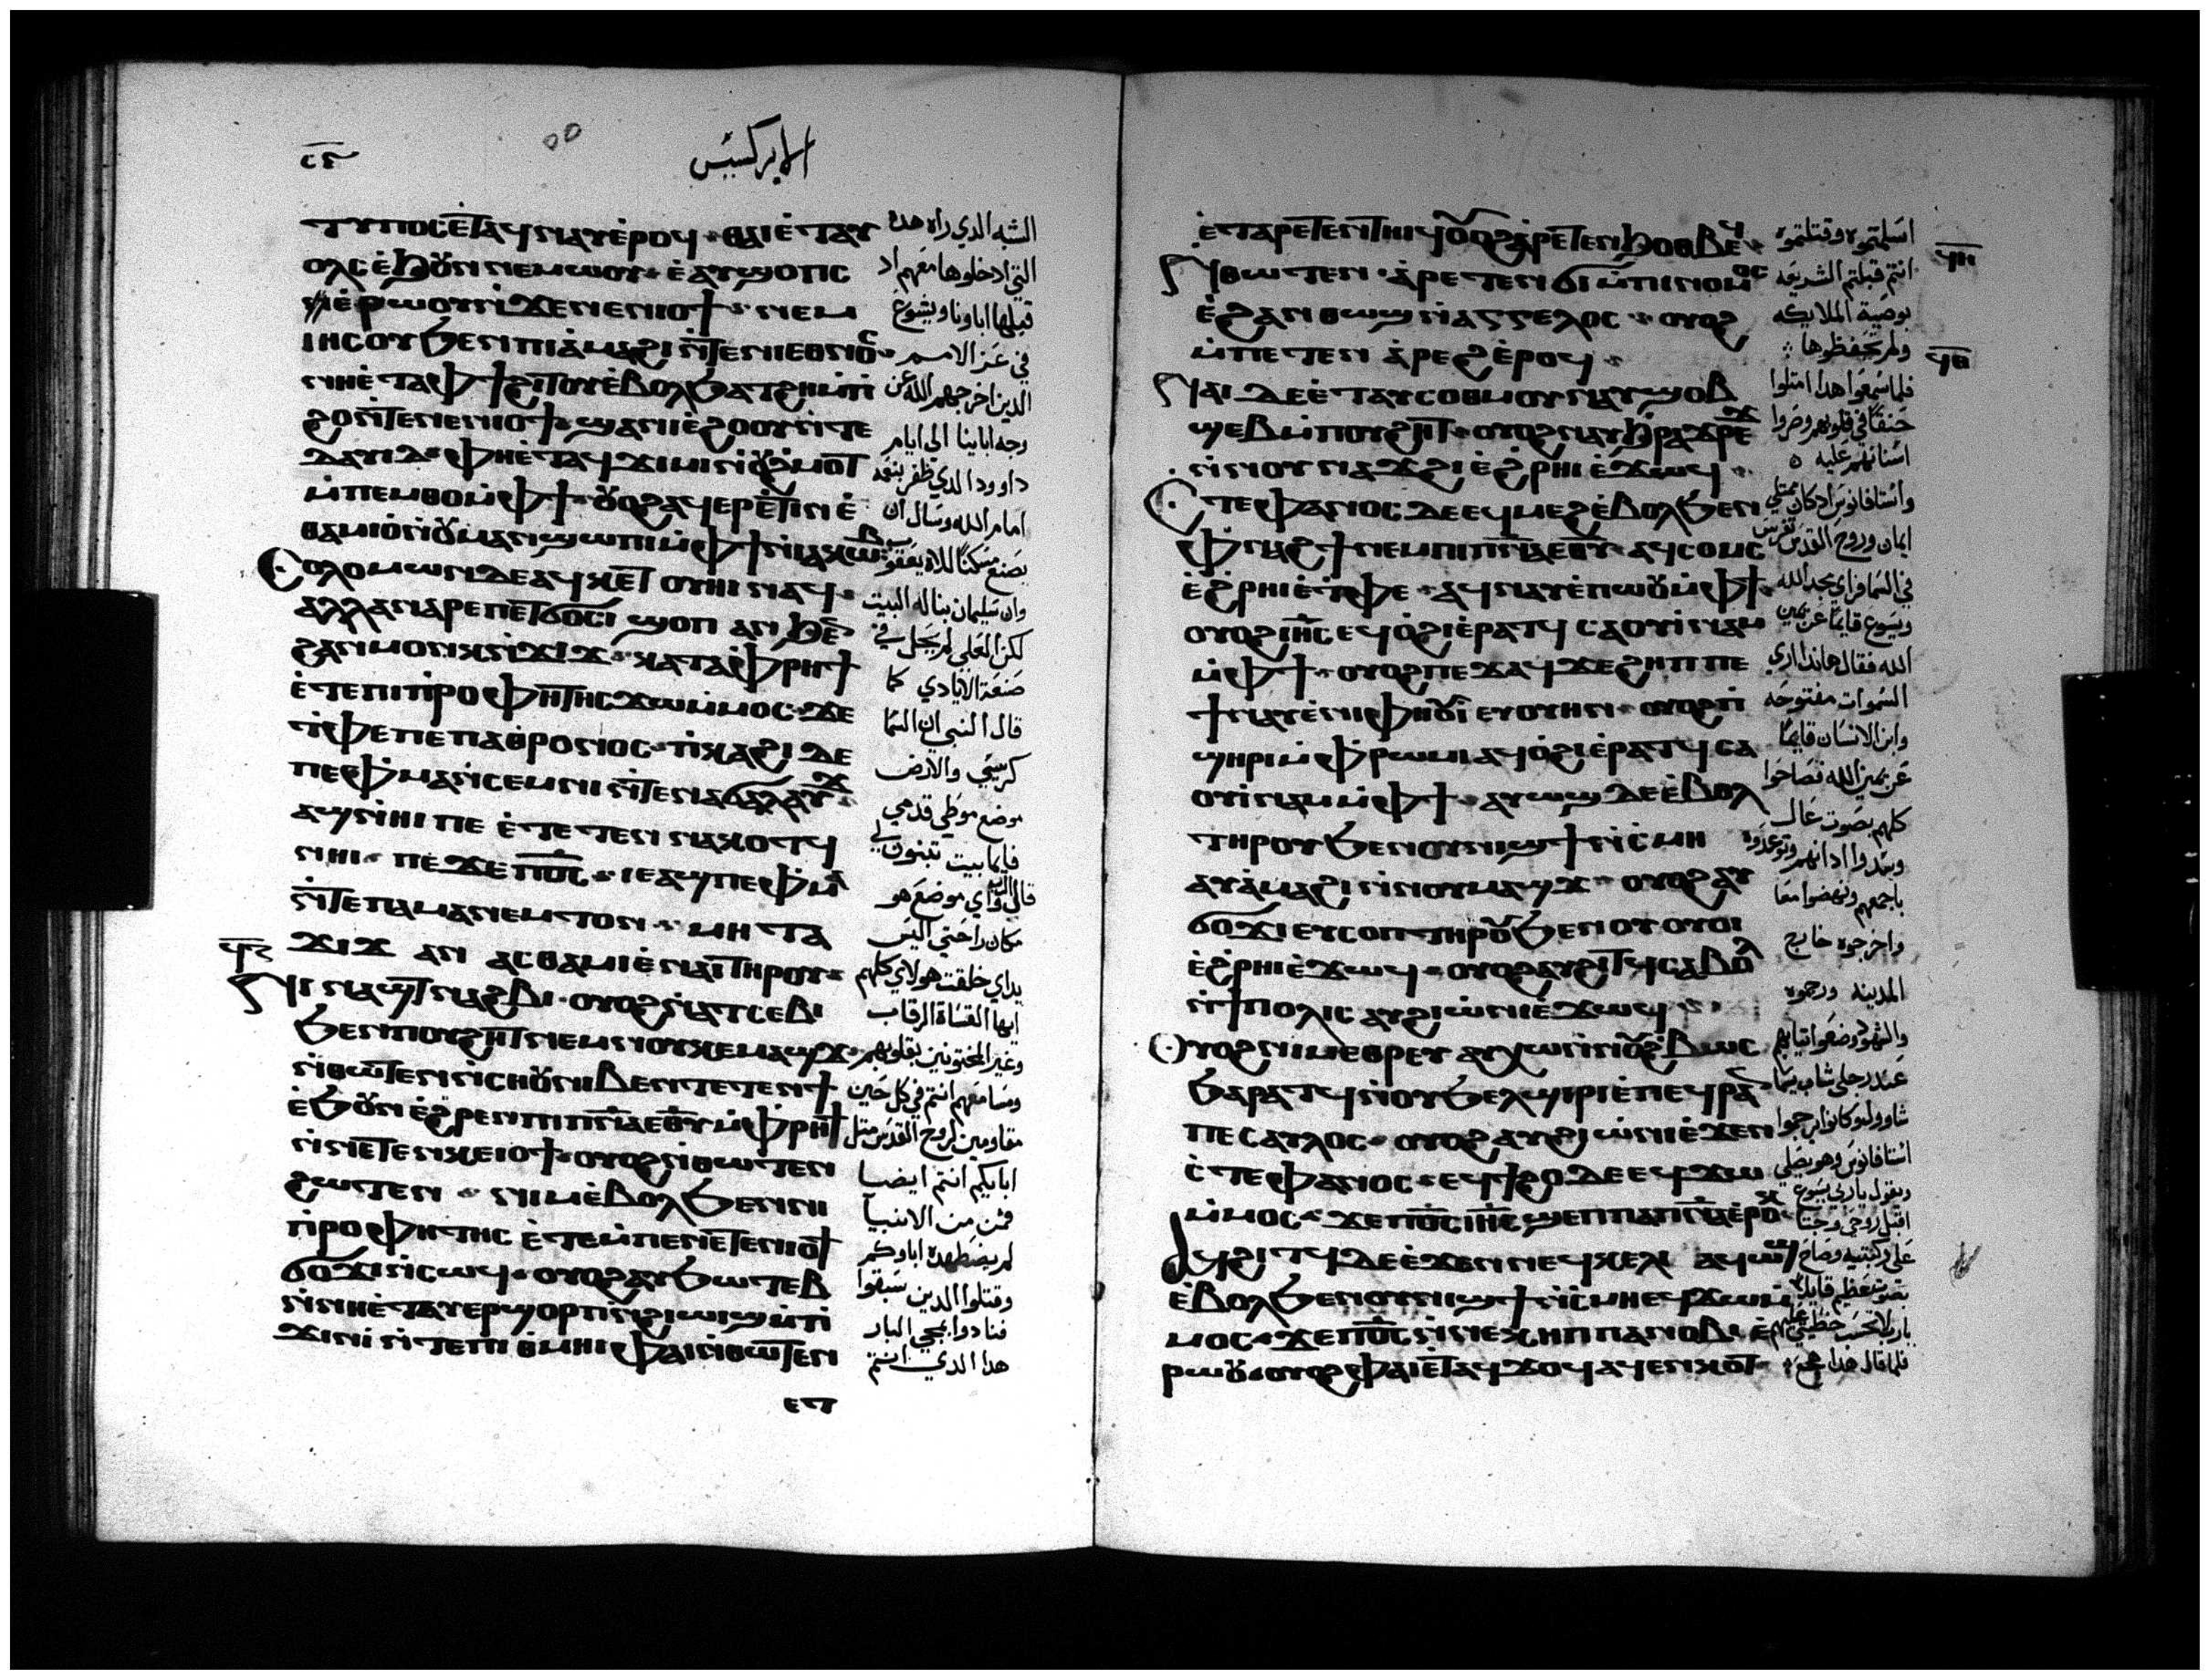 الابركسيس
ⲧⲩⲡⲟⲥ ⲉⲧⲁϥⲛⲁⲩ ⲉⲣⲟϥ ⲑⲁⲓ ⲉⲧⲁⲩ
ⲟⲗⲥ ⲉϧⲟⲩⲛ ⲛⲉⲙⲱⲟⲩ ⲉⲁⲩϣⲟⲡⲥ
ⲉⲣⲱⲟⲩ ⲛϫⲉ ⲛⲉⲛⲓⲟϯ ⲛⲉⲙ
ⲓⲏⲥⲟⲩ ϧⲉⲛ ⲡⲓⲁⲙⲁϩⲓ ⲛⲧⲉ ⲛⲓⲉⲑⲛⲟⲥ
ⲛⲏ ⲉⲧⲁ ⲫϯ ϩⲓⲧⲟⲩ ⲉⲃⲟⲗ ϧⲁⲧϩⲏ ⲙⲡ
ϩⲟ ⲛⲧⲉ ⲛⲉⲛⲓⲟϯ ϣⲁ ⲛⲓⲉϩⲟⲟⲩ ⲛⲧⲉ
ⲇⲁⲩⲓⲇ ⲫⲏ ⲉⲧⲁϥϫⲓⲙⲓ ⲛⲟⲩϩⲙⲟⲧ
ⲙⲡⲉⲙⲑⲟ ⲙⲫϯ ⲟⲩⲟϩ ⲁϥⲉⲣⲉⲧⲓⲛ ⲉ
ⲑⲁⲙⲓⲟ ⲛⲟⲩⲙⲁⲛϣⲱⲡⲓ ⲙⲫϯ ⲛⲓⲁⲕⲱⲃ
ⲥⲟⲗⲟⲙⲱⲛ ⲇⲉ ⲁϥⲕⲉⲧ ⲟⲩⲏⲓ ⲛⲁϥ
ⲁⲗⲗⲁ ⲛⲁⲣⲉ ⲡⲉⲧϭⲟⲥⲓ ϣⲟⲡ ⲁⲛ ϧⲉⲛ
ϩⲁⲛⲙⲟⲛⲕ ⲛϫⲓϫ ⲕⲁⲧⲁ ⲫⲣⲏϯ
ⲉⲧⲉ ⲡⲓⲡⲣⲟⲫⲏⲧⲏⲥ ϫⲱ ⲙⲙⲟⲥ ϫⲉ
ⲧⲫⲉ ⲡⲉ ⲡⲁⲑⲣⲟⲛⲟⲥ ⲡⲕⲁϩⲓ ⲇⲉ
ⲡⲉ ⲫⲙⲁⲛⲥⲉⲙⲛⲓ ⲛⲧⲉ ⲛⲁϭⲁⲗⲁⲩϫ
ⲁϣ ⲛⲏⲓ ⲡⲉ ⲉⲧⲉⲧⲉⲛⲛⲁⲕⲟⲧϥ
ⲛⲏⲓ ⲡⲉϫⲉ ⲡϭⲥ ⲓⲉ ⲁϣ ⲡⲉ ⲫⲙⲁ
ⲛⲧⲉ ⲡⲁⲙⲁⲛⲉⲙⲧⲟⲛ ⲙⲏ ⲧⲁ
ϫⲓϫ ⲁⲛ ⲁⲥⲑⲁⲙⲓⲉ ⲛⲁⲓ ⲧⲏⲣⲟⲩ
ⲛⲓⲛⲁϣⲧⲛⲁϩⲃⲓ ⲟⲩⲟϩ ⲛⲁⲧⲥⲉⲃⲓ
ϧⲉⲛ ⲡⲟⲩϩⲏⲧ ⲛⲉⲙ ⲛⲟⲩⲕⲉⲙⲁϣϫ
ⲛⲑⲱⲧⲉⲛ ⲛⲥⲏⲟⲩ ⲛⲓⲃⲉⲛ ⲧⲉⲧⲉⲛϯ
ⲉϧⲟⲩⲛ ⲉϩⲣⲉⲛ ⲡⲓⲡⲛⲁ ⲉⲑⲩ ⲙⲫⲣⲏϯ
ⲛⲛⲉⲧⲉⲛⲕⲉⲓⲟϯ ⲟⲩⲟϩ ⲛⲑⲱⲧⲉⲛ
ϩⲱⲧⲉⲛ ⲛⲓⲙ ⲉⲃⲟⲗ ϧⲉⲛ ⲛⲓ
ⲡⲣⲟⲫⲏⲧⲏⲥ ⲉⲧⲉ ⲙⲡⲉ ⲛⲉⲧⲉⲛⲓⲟϯ
ϭⲟϫⲓ ⲛⲥⲱϥ ⲟⲩⲟϩ ⲁⲩϧⲱⲧⲉⲃ
ⲛⲛⲏ ⲉⲧⲁⲩⲉⲣϣⲟⲣⲡ ⲛϩⲓⲱⲓϣ ⲙⲡ
ϫⲓⲛⲓ ⲛⲧⲉ ⲡⲓⲑⲙⲏⲓ ⲫⲁⲓ ⲛⲑⲱⲧⲉⲛ
ⲉⲧ
الشبه الذي راه هذه
التي ادخلوها معهم اذ
قبلها اباونا ويشوع
في عز الامم
الذين اخرجهم الله عن
وجه اباينا الي ايام
داوود الذي ظفر بنعمه
امام الله وسال ان
يصنع مسكنًا لالاه يعقوب
وان سليمان بنا له البيت
لكن العلي لم يحل في
صنعة الايادي كما
قال النبي ان السما
كرسيي والارض
موضع موطي قدمي
فايما بيت تبنون لي
قال الرب واي موضع هو
مكان راحتي اليس
يداي خلقت هولاي كلهم
ايها القساة الرقاب
وغير المختونين بقلوبهم
ومسامعهم انتم في كل حين
مقاومين لروح القدس مثل
ابايكم انتم ايضا
فمن من الانبيا
لم يضطهده اباوكم
وقتلوا الذين سبقوا
فنادوا بمجي البار
هذا الذي انتم
ⲉⲧⲁⲣⲉⲧⲉⲛⲧⲏⲓϥ ⲟⲩⲟϩ ⲁⲣⲉⲧⲉⲛϧⲟⲑⲃⲉϥ
ⲛⲑⲱⲧⲉⲛ ⲁⲣⲉⲧⲉⲛϭⲓ ⲙⲡⲓⲛⲟⲙⲟⲥ
ⲉϩⲁⲛⲑⲱϣ ⲛⲁⲅⲅⲉⲗⲟⲥ ⲟⲩⲟϩ
ⲙⲡⲉⲧⲉⲛ ⲁⲣⲉϩ ⲉⲣⲟϥ
ⲛⲁⲓ ⲇⲉ ⲉⲧⲁⲩⲥⲟⲑⲙⲟⲩ ⲛⲁⲩϣⲟⲃ
ϣⲉⲃ ⲙⲡⲟⲩϩⲏⲧ ⲟⲩⲟϩ ⲛⲁⲩϧⲣⲁϫⲣⲉϫ
ⲛⲛⲟⲩⲛⲁϫϩⲓ ⲉϩⲣⲏⲓ ⲉϫⲱϥ
ⲥⲧⲉⲫⲁⲛⲟⲥ ⲇⲉ ⲉϥⲙⲉϩ ⲉⲃⲟⲗ ϧⲉⲛ
ⲫⲛⲁϩϯ ⲛⲉⲙ ⲡⲓⲡⲛⲁ ⲉⲑⲩ ⲁϥⲥⲟⲙⲥ
ⲉϩⲣⲏⲓ ⲉⲧⲫⲉ ⲁϥⲛⲁⲩ ⲉⲡⲱⲟⲩ ⲙⲫϯ
ⲟⲩⲟϩ ⲓⲏⲥ ⲉϥⲟϩⲓ ⲉⲣⲁⲧϥ ⲥⲁⲟⲩⲓⲛⲁⲙ
ⲙⲫϯ ⲟⲩⲟϩ ⲡⲉϫⲁϥ ϫⲉ ϩⲏⲡⲡⲉ
ϯⲛⲁⲩ ⲉⲛⲓⲫⲏⲟⲩⲓ ⲉⲩⲟⲩⲏⲛ ⲟⲩⲟϩ ⲡ
ϣⲏⲣⲓ ⲙⲫⲣⲱⲙⲓ ⲁϥⲟϩⲓ ⲉⲣⲁⲧϥ ⲥⲁ
ⲟⲩⲓⲛⲁⲙ ⲙⲫϯ ⲁⲩⲱϣ ⲇⲉ ⲉⲃⲟⲗ
ⲧⲏⲣⲟⲩ ϧⲉⲛ ⲟⲩⲛⲓϣϯ ⲛⲥⲙⲏ
ⲁⲩⲁⲙⲁϩⲓ ⲛⲛⲟⲩⲙⲁϣϫ ⲟⲩⲟϩ ⲁⲩ
ϭⲟϫⲓ ⲉⲩⲥⲟⲡ ⲧⲏⲣⲟⲩ ϧⲉⲛ ⲟⲩⲟⲩⲟⲓ
ⲉϩⲣⲏⲓ ⲉϫⲱϥ ⲟⲩⲟϩ ⲁⲩϩⲓⲧϥ ⲥⲁⲃⲟⲗ
ⲛϯⲡⲟⲗⲓⲥ ⲁⲩϩⲓⲱⲛⲓ ⲉϫⲱϥ
ⲟⲩⲟϩ ⲛⲓⲙⲉⲑⲣⲉⲩ ⲁⲩⲭⲱ ⲛⲛⲟⲩϩⲃⲱⲥ
ϧⲁⲣⲁⲧϥ ⲛⲟⲩϧⲉⲗϣⲓⲣⲓ ⲉⲡⲉϥⲣⲁⲛ
ⲡⲉ ⲥⲁⲩⲗⲟⲥ ⲟⲩⲟϩ ⲁⲩϩⲓⲱⲛⲓ ⲉϫⲉⲛ
ⲥⲧⲉⲫⲁⲛⲟⲥ ⲉϥϯϩⲟ ⲇⲉ ⲉϥϫⲱ
ⲙⲙⲟⲥ ϫⲉ ⲡϭⲥ ⲓⲏⲥ ϣⲉⲡ ⲡⲁⲡⲛⲁ ⲉⲣⲟⲕ
ⲁϥϩⲓⲧϥ ⲇⲉ ⲉϫⲉⲛ ⲛⲉϥⲕⲉⲗⲓ ⲁϥⲱϣ
ⲉⲃⲟⲗ ϧⲉⲛ ⲟⲩⲛⲓϣϯ ⲛⲥⲙⲏ ⲉϥϫⲱ ⲙ
ⲙⲟⲥ ϫⲉ ⲡϭⲥ ⲛⲛⲉⲕⲏⲡ ⲡⲁⲓⲛⲟⲃⲓ ⲉ
ⲣⲱⲟⲩ ⲟⲩⲟϩ ⲫⲁⲓ ⲉⲧⲁϥϫⲟϥ ⲁϥⲉⲛⲕⲟⲧ
اسلمتموه وقتلتموه
انتم قبلتم الشريعه
بوصية الملايكه
ولم تحفظوها
فلما سمعوا هذا امتلوا
حنقًا في قلوبهم وصروا
اسنانهم عليه
واستافانوس اذ كان ممتلي
ايمان وروح القدس تفرس
في السما فراي مجد الله
ويسوع قايمًا عن يمين
الله فقال هانذا اري
السموات مفتوحه
وابن الانسان قايمًا
عن يمين الله فصاحوا
كلهم بصوت عال
وسدوا اذانهم
باجمعهم ونهضوا معًا
واخرجوه خارج
المدينه ورجموه
والشهود وضعوا ثيابهم
عند رجلي شاب يسما
شاوول وكانوا يرجموا
استافانوس وهو يصلي
ويقول يا ربي يسوع
اقبل روحي وجثا
علي ركبتيه وصاح
بصوت عظيم قايلا
يا رب لا تحسب خطيتي عليهم
فلما قال هذا هجع